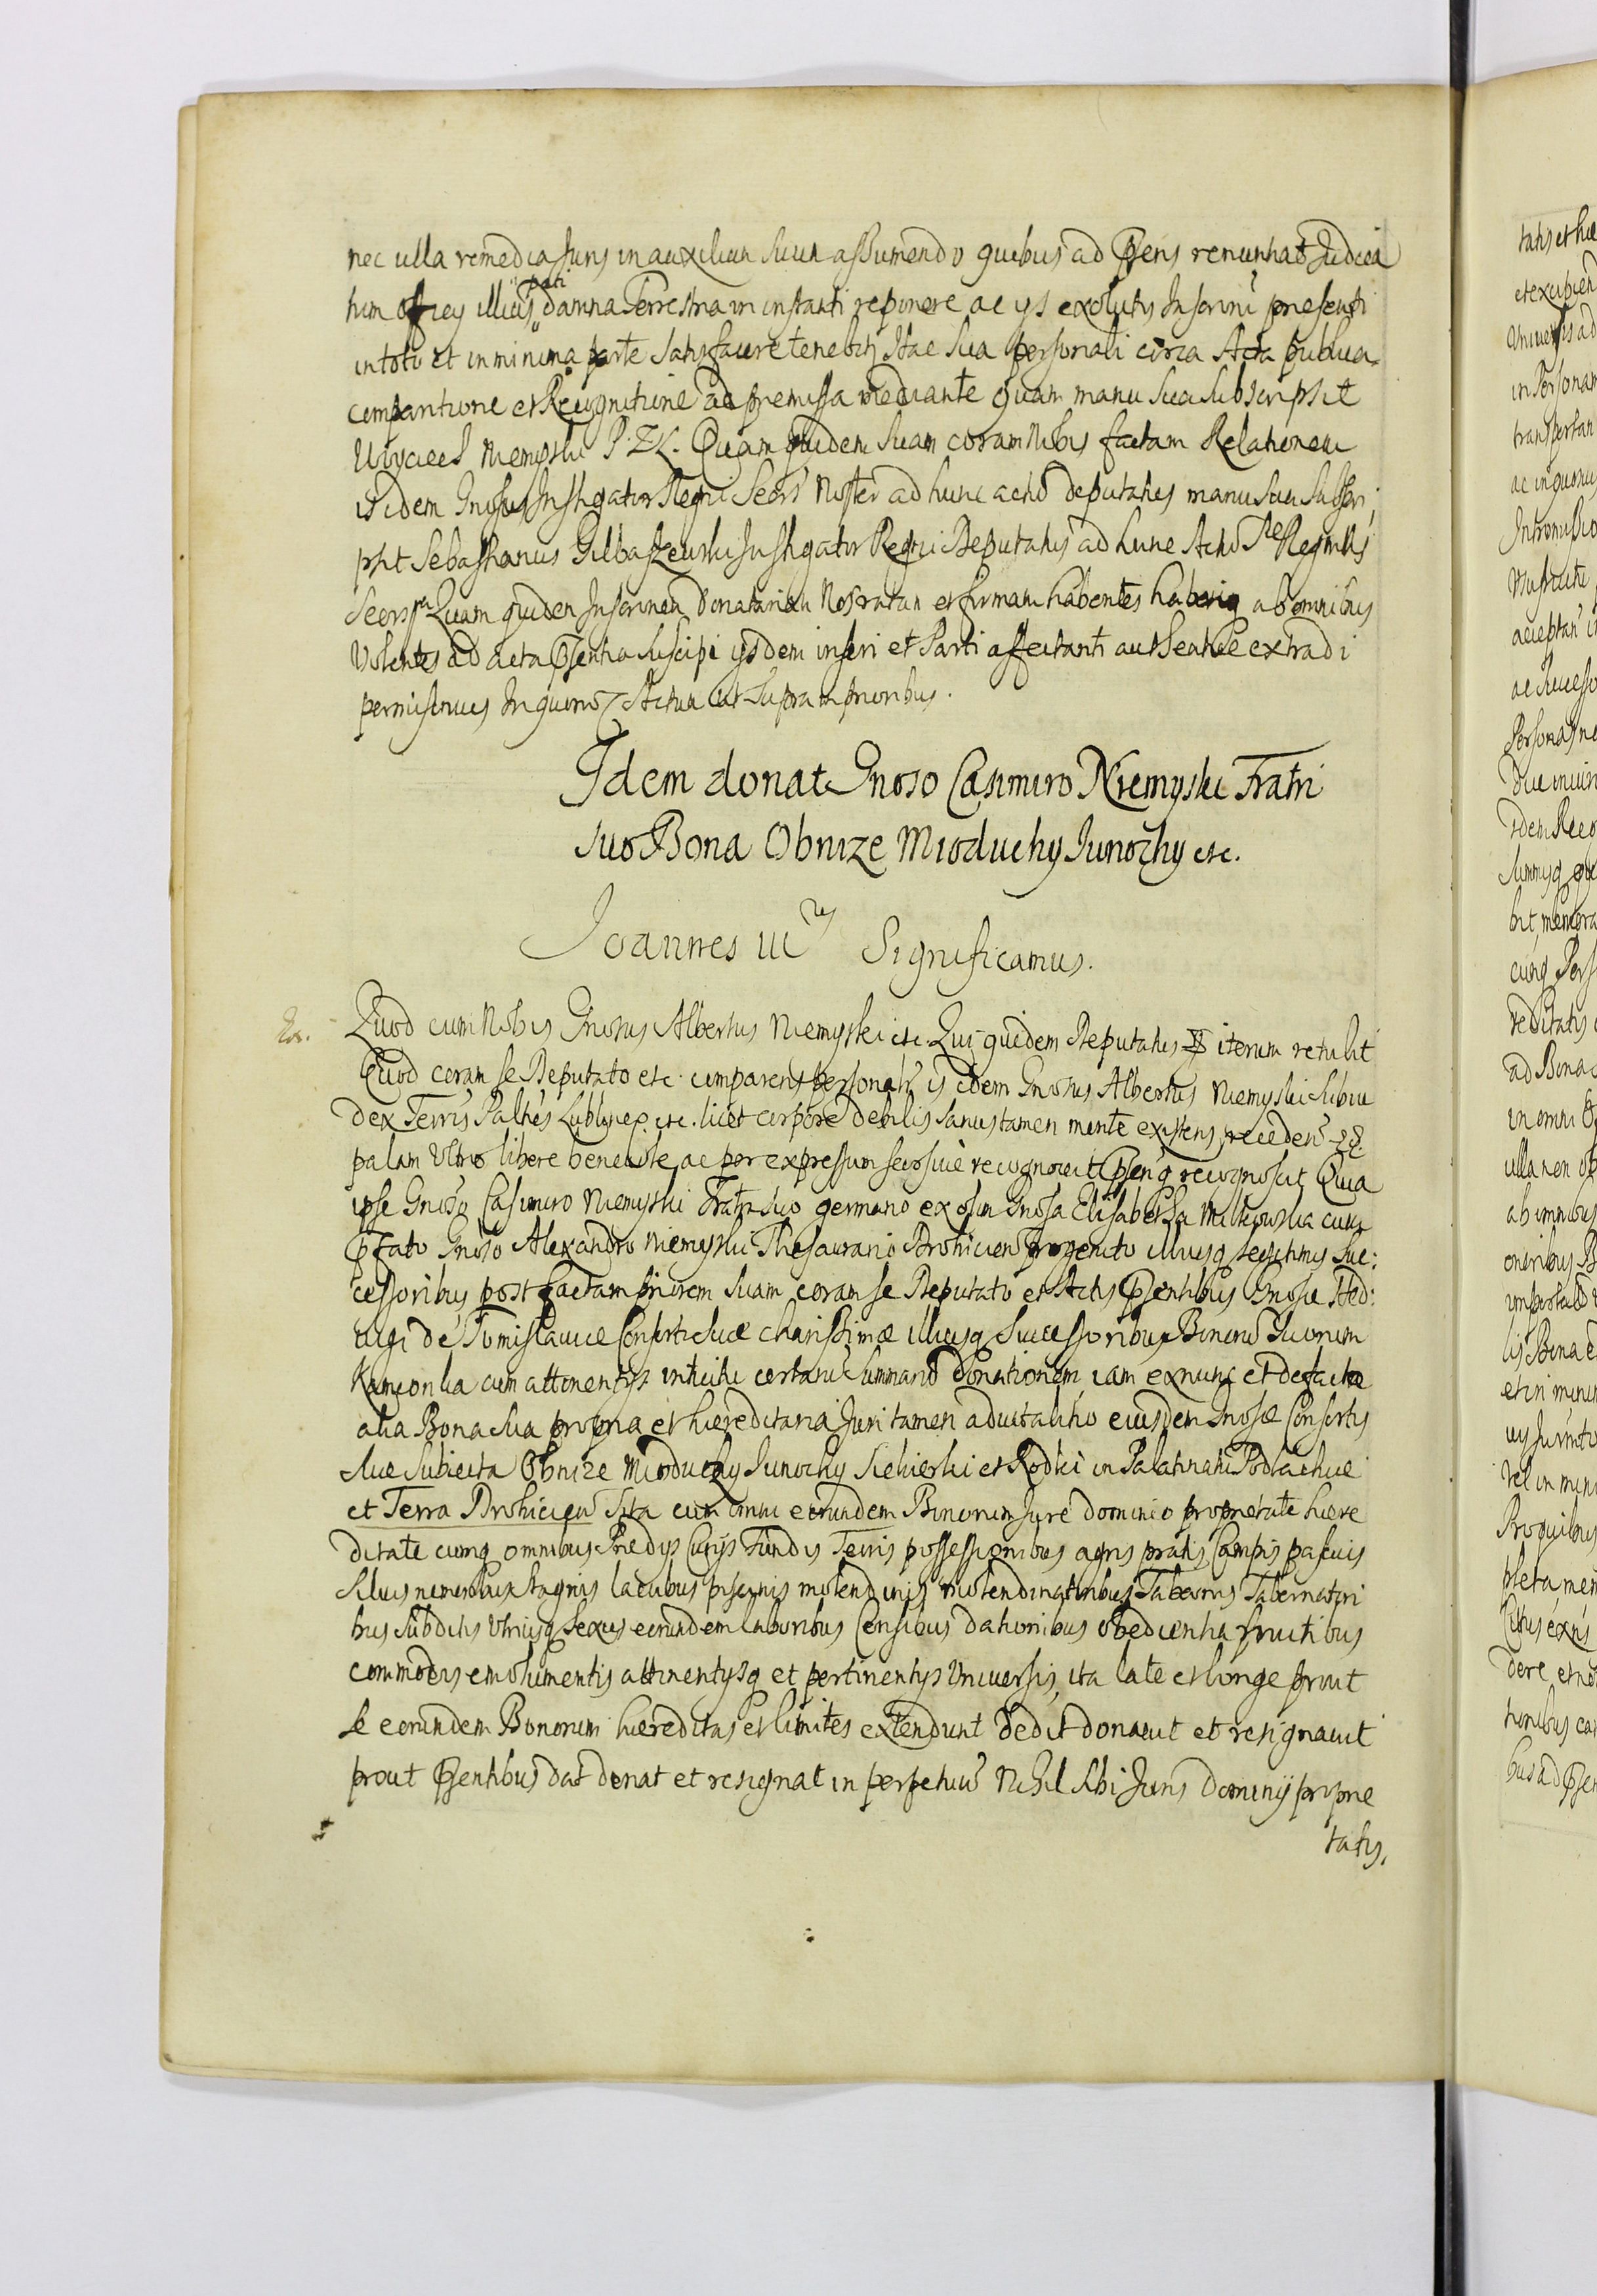 nec ulla remedia Juris in auxilium suum assumendo quibus ad Psens renunhat Judica
tum officy illius pati damna Terrestria in instanti reponere ac ys exolutis Inscriñi presenti
in toto et in minima parte satisfacere tenebit Hac sua personali circa Acta publica
comparitione et Recognitione ad premissa mediante quam manu sua subscripsit
Woyciech Niemyski P. Z L. Quam quidem suam coram Nobis factam Relationem
isidem Gnosus Instigator Regni Secrs Noster ad hunc actũ deputatus manu sua subscri
psit Sebastianus Gilbaszewski Instigator Regni Deputatus ad hunc Actũ Regius
Secrs Quam quidem Inscriñem Donatariam Nos ratam et firmam habentes haberiq ab omnibus
Volentes ad acta Psentia suscipi ysdem inseri et Parti affectanti authentice extradi
permisimus In quorũ Actum ut supra in prioribus.
Idem donat Gnoso Casimiro Niemyski Fratri
suo Bona Obnize Mioduchy Junochy etc.
Joannes IIItius Significamus.
Quod cum Nobis Gnosus Albertus Niemyski etc. Qui quidem Deputatus iterum retulit
Quod coram se Deputato etc. comparens personalr is idem Gnosus Albertus Niemyski Subiu
dex Terris Paltus Lublinen. etc. licet corpore debilis sanus tamen mente existens receden̄
palam Ultro libere benevole, ac per expressum se cosuie recognouit Psenq recognoscit Quia
ipse Gnoso Casimiro Niemyski Fratri suo germano ex olim Gnosa Elisabetha Milkowska cum
Pfato Gnoso Alexandro Niemyski Thesaurario Drohicien progenito illiusq legitimis Suc:
cessoribus post factam priorem suam coram se Deputato et Actis Psentibus Gnose Hed:
uigi de Tomislawice Consorti sue charissimæ illiusq Successoribus Bonorũ Suorum
Kamconka cum attinentys intuitu certarũ Summarũ donationem iam ex nunc et de facto
alia Bona sua propria et hæreditaria Juri tamen aduitalitio eiusdem Gnosæ Consortis
sue subiecta Obnize Mioduchy Junochy Siekierki et Rodki in Palatinatu Podlachiæ
et Terra Drohicien̄ sita cum omni eorundem Bonorum Jure dominio proprietate hære
ditate cumq omnibus Prædys Curijs Fundis Terris possessionibus agris pratis Campis pascuis
siluis nemoribus stagnis lacubus piscinis molendinis molendinatoribus Tabernis Tabernatori
bus subditis Utriusq sexus eorundem laboribus Censibus dationibus obedientia fructibus
commodis emolumentis attinentysq et pertinentys Universis, ita late et longe prout
se eorundem Bonorum hæreditas et limites extendunt dedit donauit et resignauit
prout Psentibus dat donat et resignat in perpetuũ Nihil sibi Juris Dominij proprie
tatis,